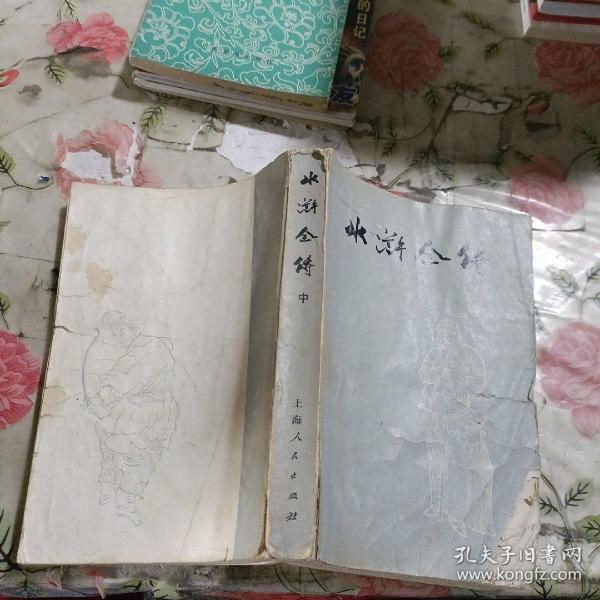 的日记
友
水浒全传
中
上海人民出版社
水浒全传
孔夫子旧书网
www.kongfz.com